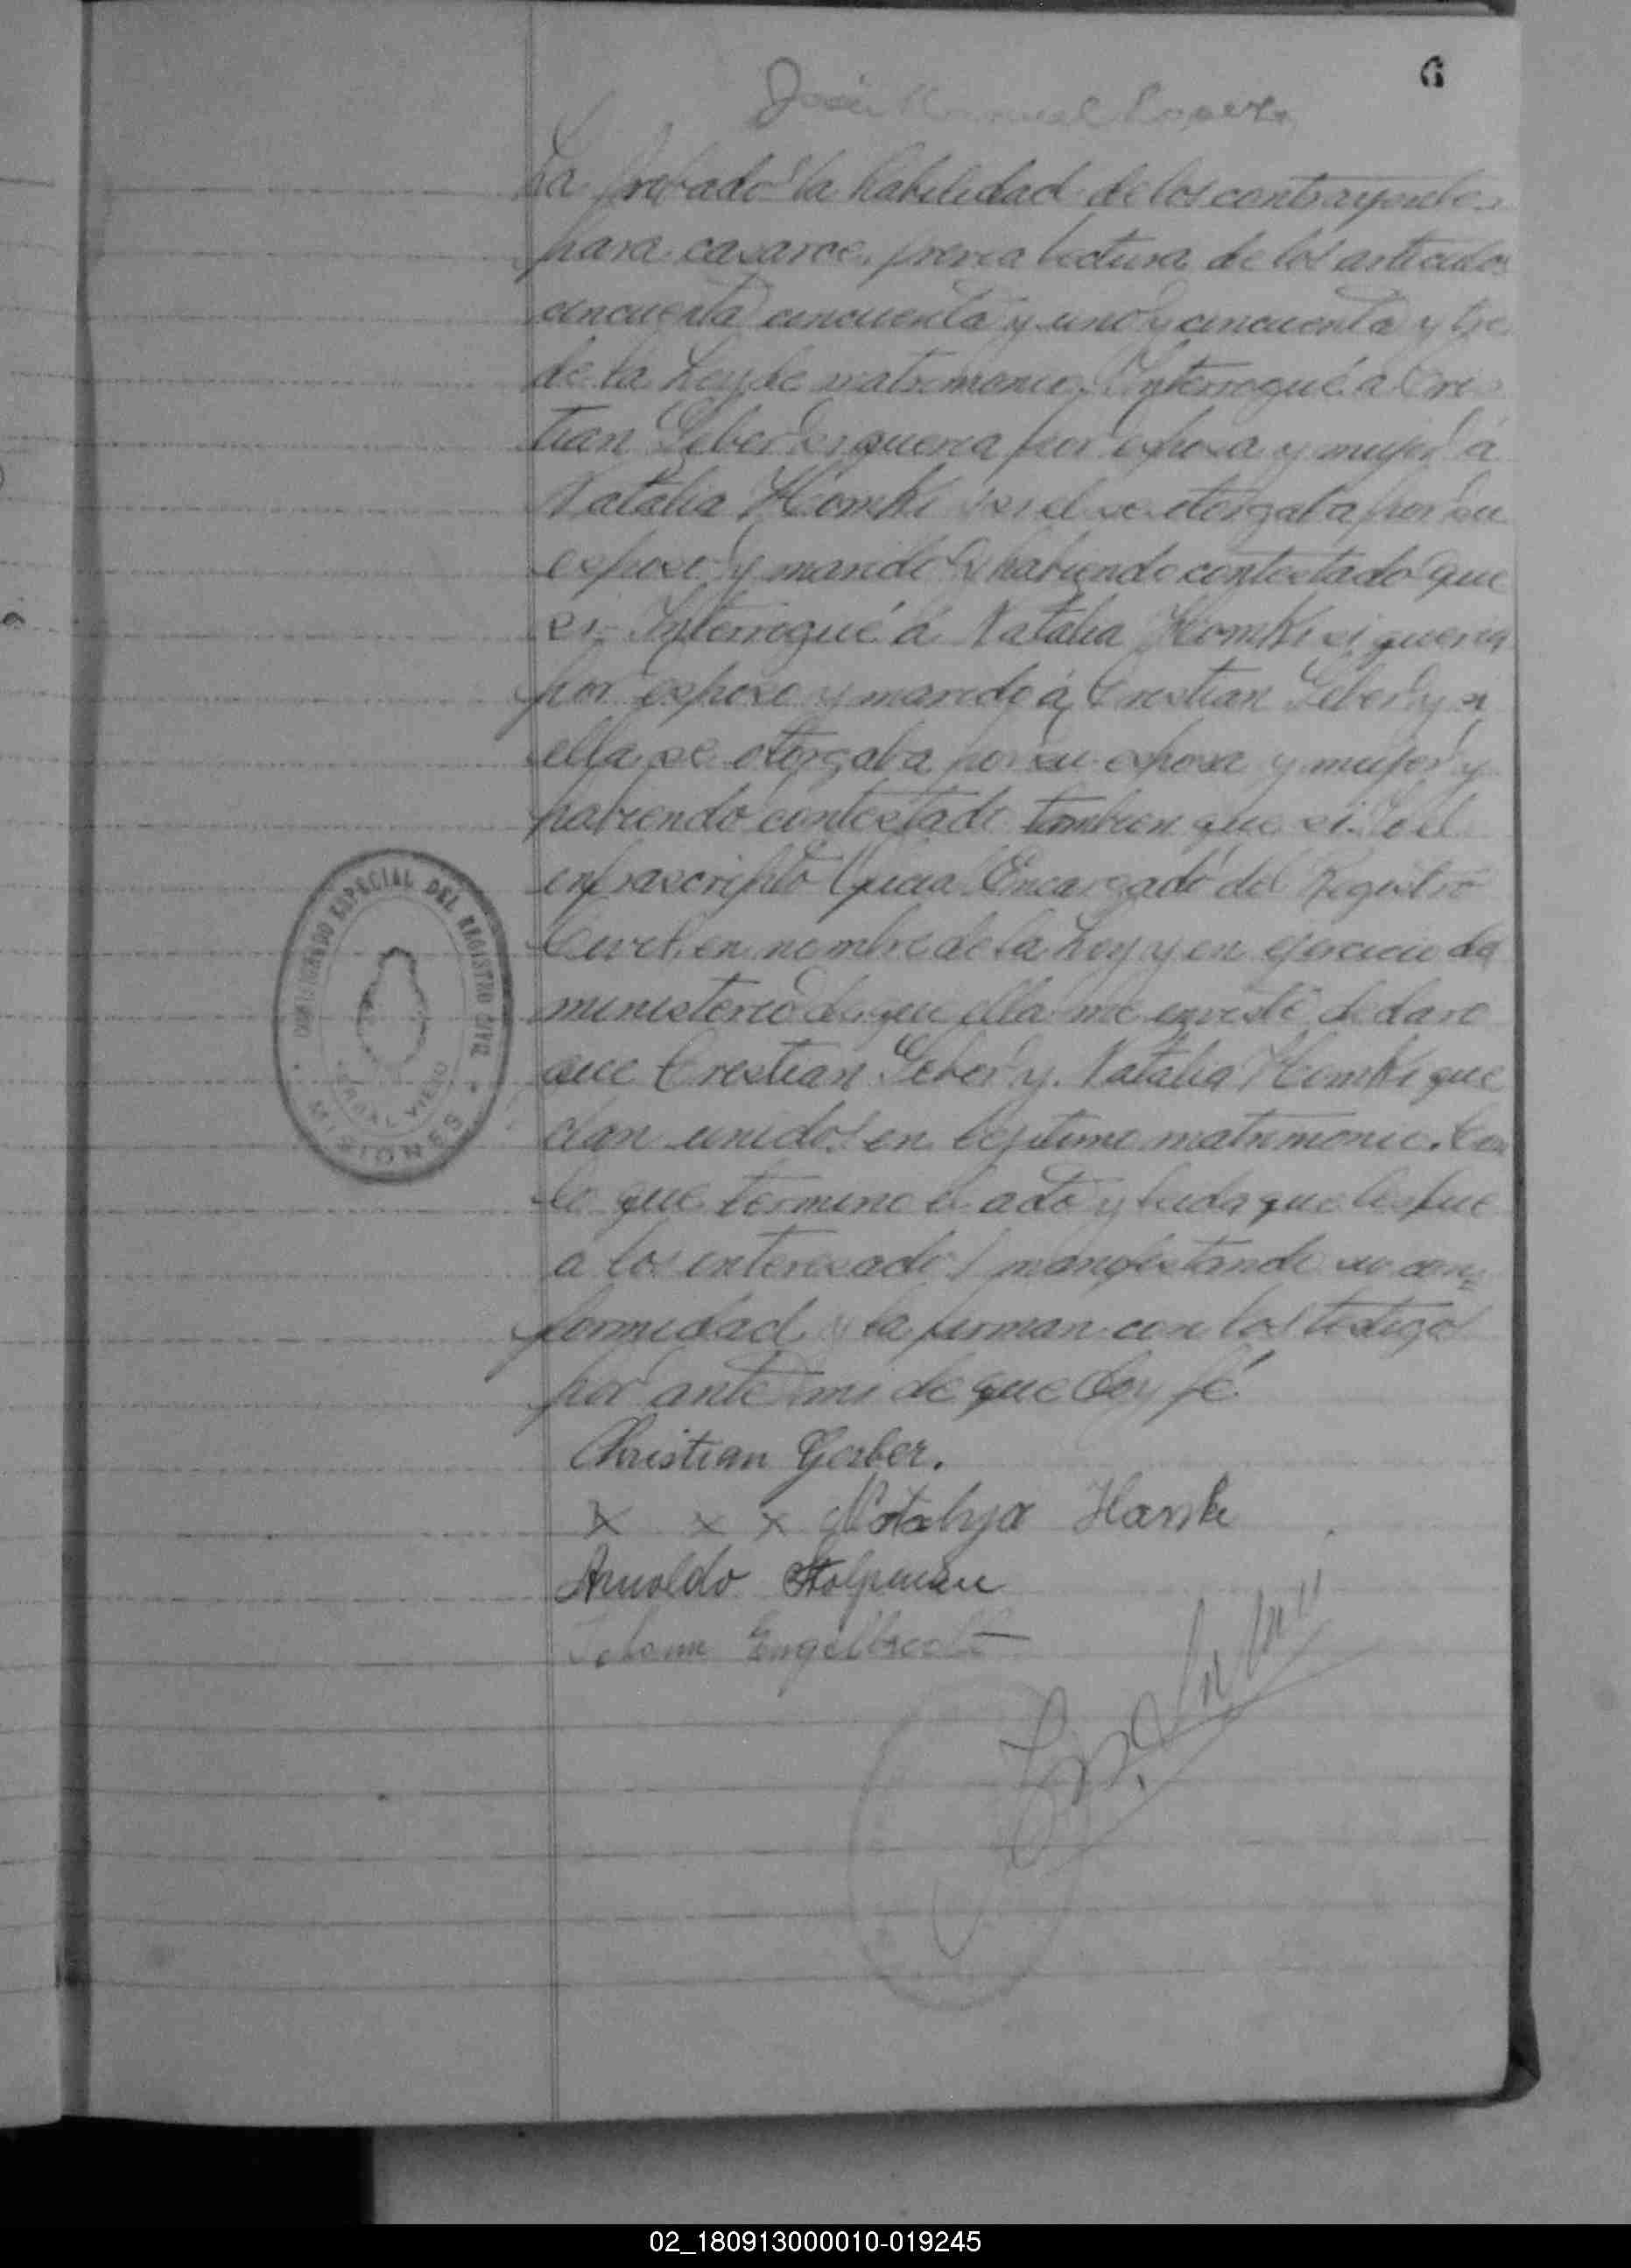 6
José Manuel Lopez
ha probado la habilidad de los contrayentes
para casarce, previa lectura de los articulos
cincuenta cincuenta y uno y cincuenta y tre
de la Ley de matrimonio. Interrogué a Cris
tian Geber si queria por esposa y mujer á
Natalia Homki y si el se otorgaba por su
esposo y marido y habiendo contestado que
si. Interrogué á Natalia Homki si queria
por esposo y marido á Cristian Geber y si
ella se otorgaba por su esposa y mujer y
habiendo contestado tambien que si. Yo el
infrascripto Oficial Encargado del Registro
Civil, en nombre de la Ley y en ejercicio del
ministerio de que ella me inviste declaro
que Cristian Geber y Natalia Homki que
dan unidos en legitimo matrimonio. Con
lo que termino el acto y leida que les fue
a los interesados manifestando su con=
formidad y la firman con los testigos
por ante mi de que doy fé.
COMISIONADO ESPECIAL DEL REGISTRO CIVIL
MISIONES
Christian Gerber.
x x x Natalya Hanke
Arnoldo Stolpmann
Johann Engelbrecht
02_180913000010-019245